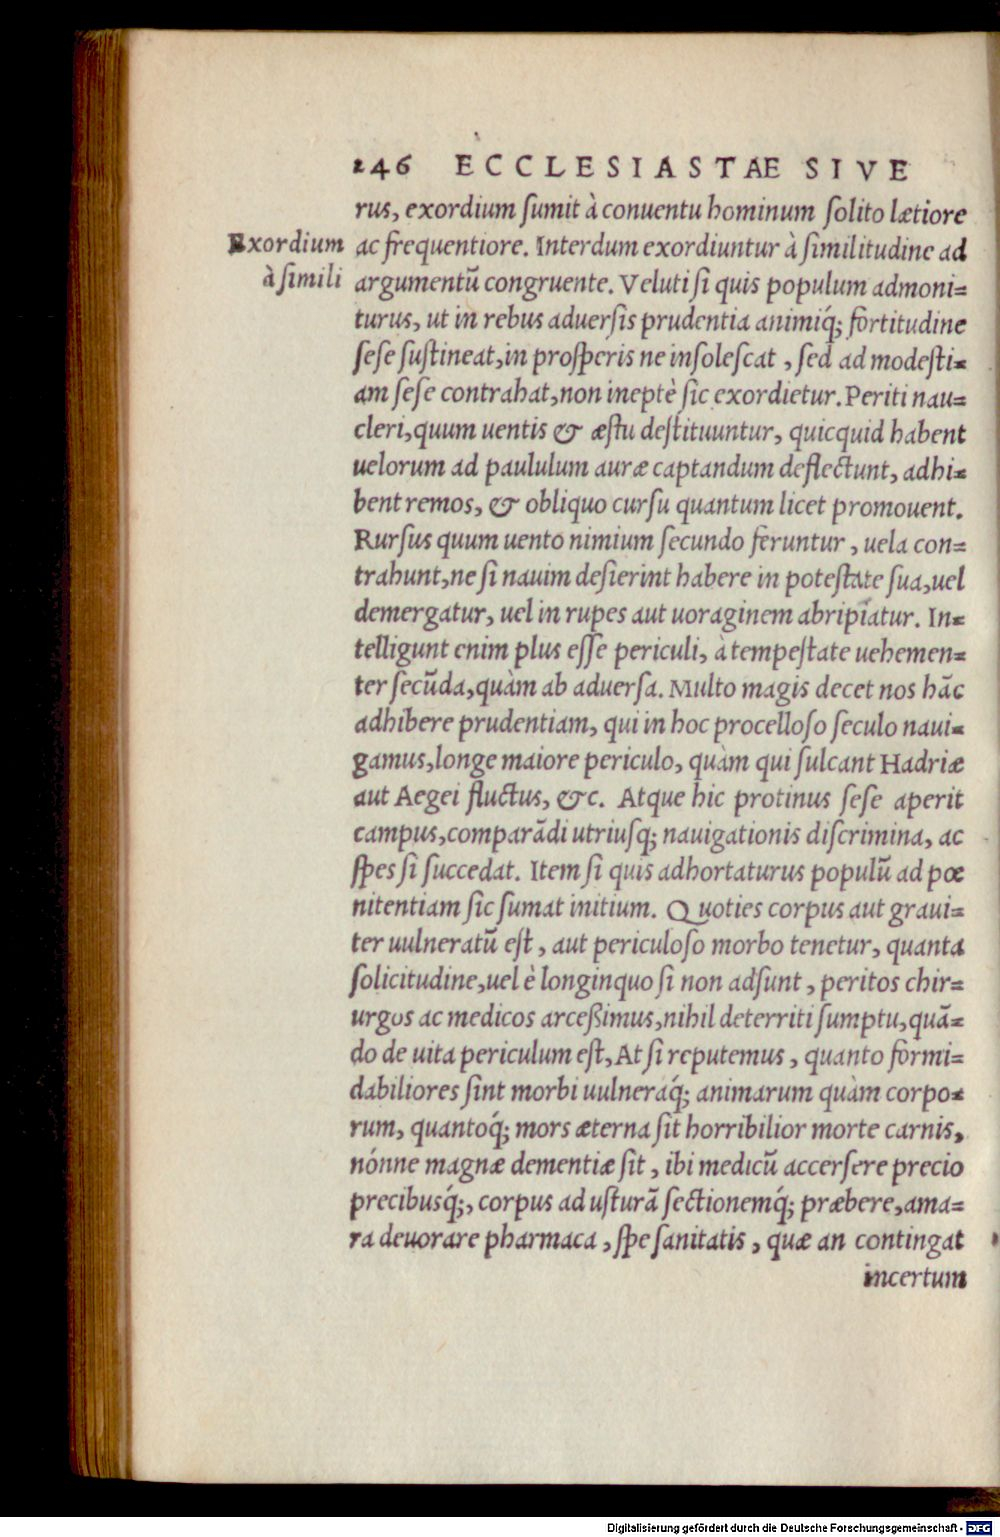 246 ECCLESIASTAE SIVE
rus, exordium ſumit à conuentu hominum ſolito lætiore
Exordium
ac frequentiore. Interdum exordiuntur à ſimilitudine ad
à ſimili
argumentū congruente. Veluti ſi quis populum admoni=
turus, ut in rebus aduerſis prudentia animiq́; fortitudine
ſeſe ſuſtineat, in proſperis ne inſoleſcat, ſed ad modeſti=
am ſeſe contrahat, non ineptè ſic exordietur. Periti nau=
cleri, quum uentis & æſtu deſtituuntur, quicquid habent
uelorum ad paululum auræ captandum deflectunt, adhi=
bent remos, & obliquo curſu quantum licet promouent.
Rurſus quum uento nimium ſecundo feruntur, uela con=
trahunt, ne ſi nauim deſierint habere in poteſtate ſua, uel
demergatur, uel in rupes aut uoraginem abripiatur. In=
telligunt enim plus eſſe periculi, à tempeſtate uehemen=
ter ſecūda, quàm ab aduerſa. Multo magis decet nos hāc
adhibere prudentiam, qui in hoc procelloſo ſeculo naui=
gamus, longe maiore periculo, quàm qui ſulcant Hadriæ
aut Aegei fluctus, &c. Atque hic protinus ſeſe aperit
campus, comparādi utriuſq; nauigationis diſcrimina, ac
ſpes ſi ſuccedat. Item ſi quis adhortaturus populū ad pœ
nitentiam ſic ſumat initium. Quoties corpus aut graui=
ter uulneratū eſt, aut periculoſo morbo tenetur, quanta
ſolicitudine, uel è longinquo ſi non adſunt, peritos chir=
urgos ac medicos arceßimus, nihil deterriti ſumptu, quā=
do de uita periculum eſt, At ſi reputemus, quanto formi=
dabiliores ſint morbi uulneraq́; animarum quàm corpo=
rum, quantoq́; mors æterna ſit horribilior morte carnis,
nónne magnæ dementiæ ſit, ibi medicū accerſere precio
precibusq́;, corpus ad uſturā ſectionemq́; præbere, ama=
ra deuorare pharmaca, ſpe ſanitatis, quæ an contingat
incertum
Digitalisierung gefördert durch die Deutsche Forschungsgemeinschaft - DFG